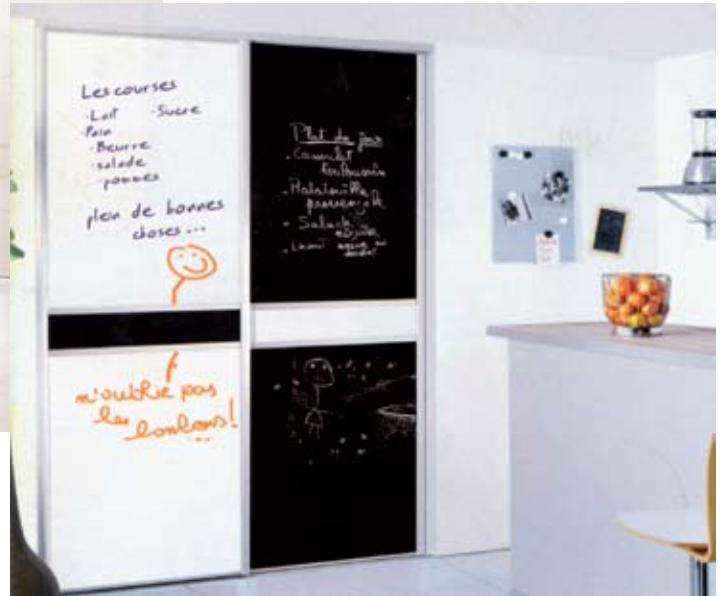 Les courses
- Lait - Sucre
- Pain
- Beurre
- salade
- pommes
plein de bonnes
choses...
n'oublie pas
les bonbons!
Plat du jour
- Cassoulet
toulousain
- Ratatouille
provençale
- Salade
niçoise